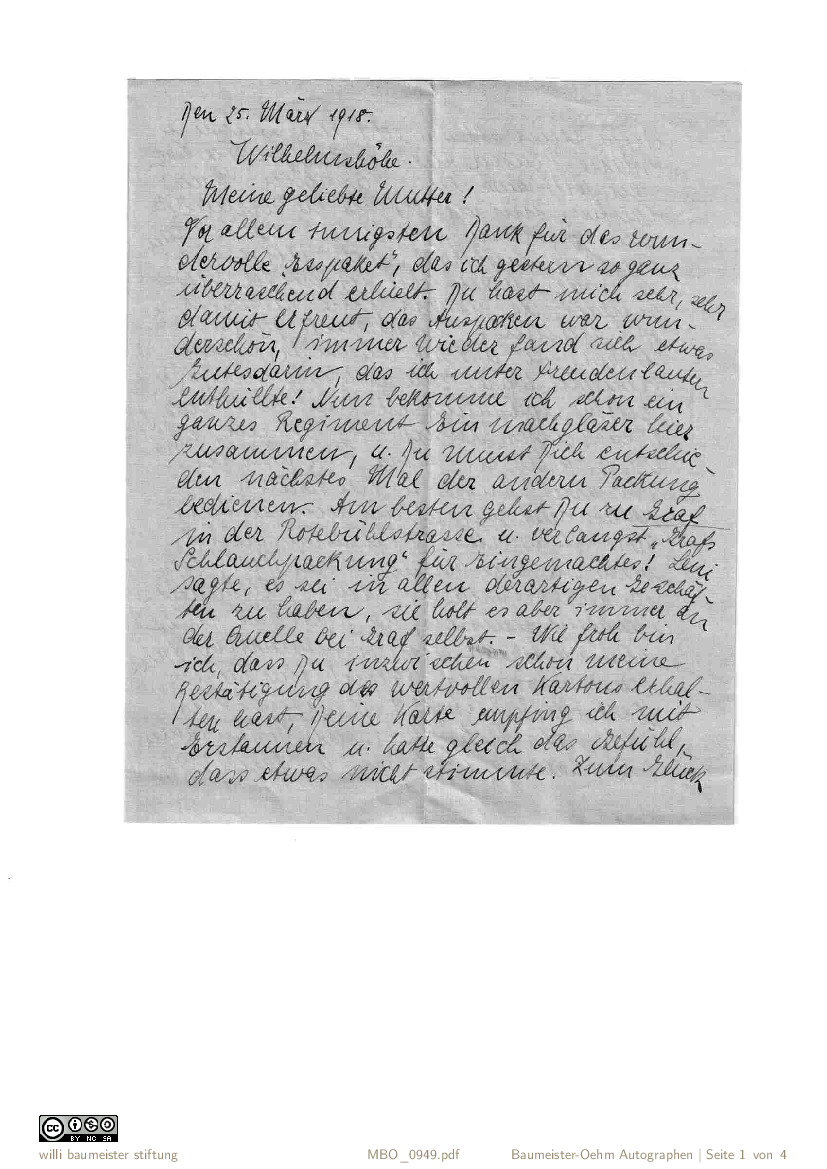 Den 25. März 1918.
Wilhelmshöhe.
Meine geliebte Mutter!
Vor allem innigsten Dank für das wun-
dervolle „Esspaket“, das ich gestern so ganz
überraschend erhielt. Du hast mich sehr, sehr
damit erfreut, das Auspaken war wun-
derschön, immer wieder fand sich etwas
Gutes darin, das ich unter Freudenlauten
enthüllte! Nun bekomme ich schon ein
ganzes Regiment Einmachgläser hier
zusammen, u. Du musst Dich entschie-
den nächstes Mal der andern Packung
bedienen. Am besten gehst Du zu Graf
in der Rotebühlstrasse u. verlangst „Grafs
Schlauchpackung“ für Eingemachtes! Leni
sagte, es sei in allen derartigen Geschäf-
ten zu haben, sie holt es aber immer an
der Quelle bei Graf selbst. – Wie froh bin
ich, dass Du inzwischen schon meine
Bestätigung des wertvollen Kartons erhal-
ten hast, Deine Karte empfing ich mit
Erstaunen u. hatte gleich das Gefühl,
dass etwas nicht stimmte. Zum Glück
CC BY NC SA
willi baumeister stiftung MBO_0949.pdf Baumeister-Oehm Autographen | Seite 1 von 4